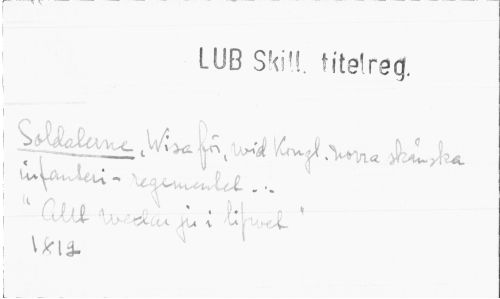 LUB Skill. titelreg.
Soldaterne, Wisa för, wid Kongl. norra skånska
infanteri-regementet ...
" Allt wedar ju i lifwet "
1819